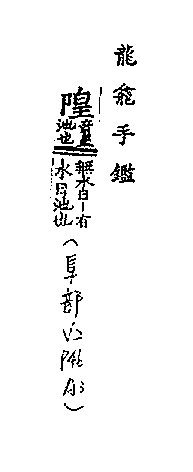 龍龕手鑑
隍音皇池也無水曰隍有水曰池也(阜部